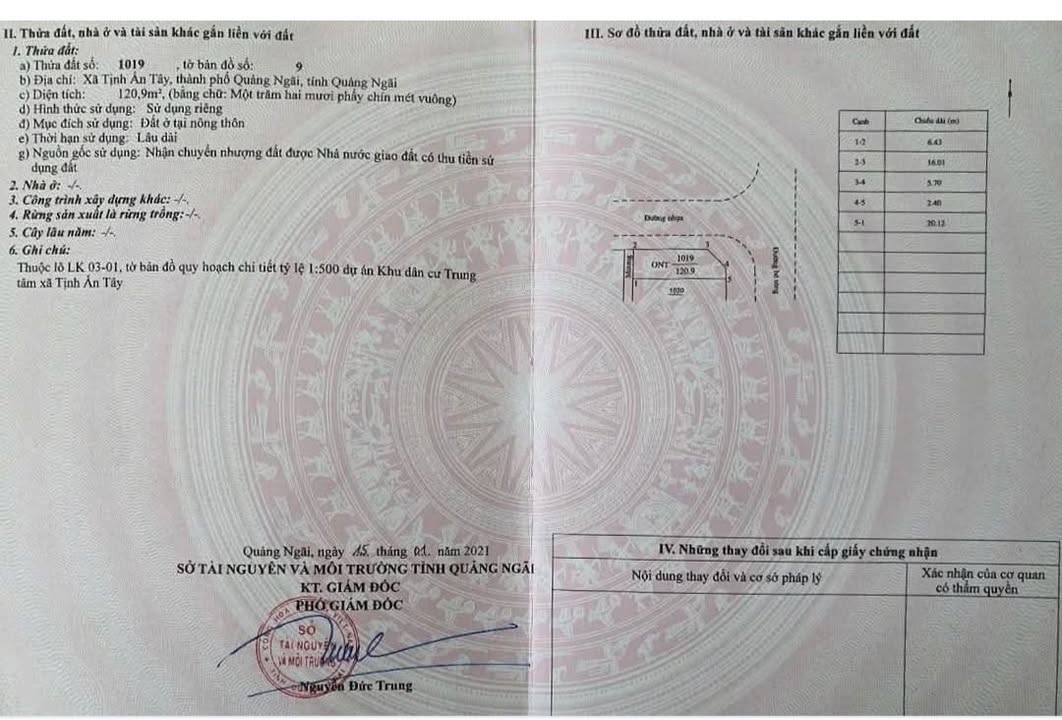 II. Thửa đất, nhà ở và tài sản khác gắn liền với đất
1. Thửa đất:
a) Thửa đất số: 1019 , tờ bản đồ số: 9
b) Địa chỉ: Xã Tịnh Ấn Tây, thành phố Quảng Ngãi, tỉnh Quảng Ngãi
c) Diện tích: 120,9m², (bằng chữ: Một trăm hai mươi phẩy chín mét vuông)
d) Hình thức sử dụng: Sử dụng riêng
đ) Mục đích sử dụng: Đất ở tại nông thôn
e) Thời hạn sử dụng: Lâu dài
g) Nguồn gốc sử dụng: Nhận chuyển nhượng đất được Nhà nước giao đất có thu tiền sử
dụng đất
2. Nhà ở: -/-.
3. Công trình xây dựng khác: -/-.
4. Rừng sản xuất là rừng trồng:-/-.
5. Cây lâu năm: -/-.
6. Ghi chú:
Thuộc lô LK 03-01, tờ bản đồ quy hoạch chi tiết tỷ lệ 1:500 dự án Khu dân cư Trung
tâm xã Tịnh Ấn Tây
Quảng Ngãi, ngày 15 tháng 01. năm 2021
SỞ TÀI NGUYÊN VÀ MÔI TRƯỜNG TỈNH QUẢNG NGÃI
KT. GIÁM ĐỐC
PHÓ GIÁM ĐỐC
SỞ
TÀI NGUYÊN
VÀ MÔI TRƯỜNG
Nguyễn Đức Trung
III. Sơ đồ thửa đất, nhà ở và tài sản khác gắn liền với đất
Cạnh Chiều dài (m)
1-2 6.43
2-3 16.01
3-4 5.70
4-5 2.40
5-1 20.12
Đường nhựa
2 3
Mương ONT 1019 4
120.9
1 5
1020
Đường bê tông
IV. Những thay đổi sau khi cấp giấy chứng nhận
Nội dung thay đổi và cơ sở pháp lý
Xác nhận của cơ quan
có thẩm quyền